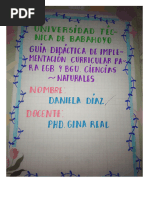 UNIVERSIDAD TÉC-
NICA DE BABAHOYO
GUÍA DIDÁCTICA DE IMPLE-
MENTACIÓN CURRICULAR PA-
RA EGB Y BGU CIENCIAS
~ NATURALES
NOMBRE:
DANIELA DÍAZ
DOCENTE:
PHD. GINA REAL